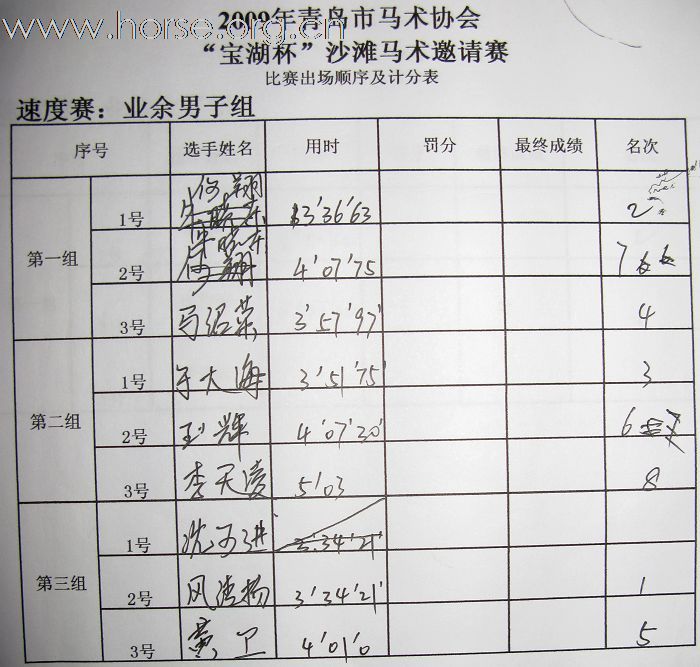 www.horse.org.cn
2009年青岛市马术协会
“宝湖杯”沙滩马术邀请赛
比赛出场顺序及计分表
速度赛：业余男子组
序号 选手姓名 用时 罚分 最终成绩 名次
第一组
1号 何翔 3'36'63 2
2号 4'07'75 7
3号 马绍荣 3'57'97' 4
第二组
1号 于大海 3'51'75' 3
2号 辉 4'07'20' 6
3号 李天凌 5'03 8
第三组
1号 沈 进 3'34'21'
2号 风 杨 3'34'21' 1
3号 黄卫 4'01'0 5